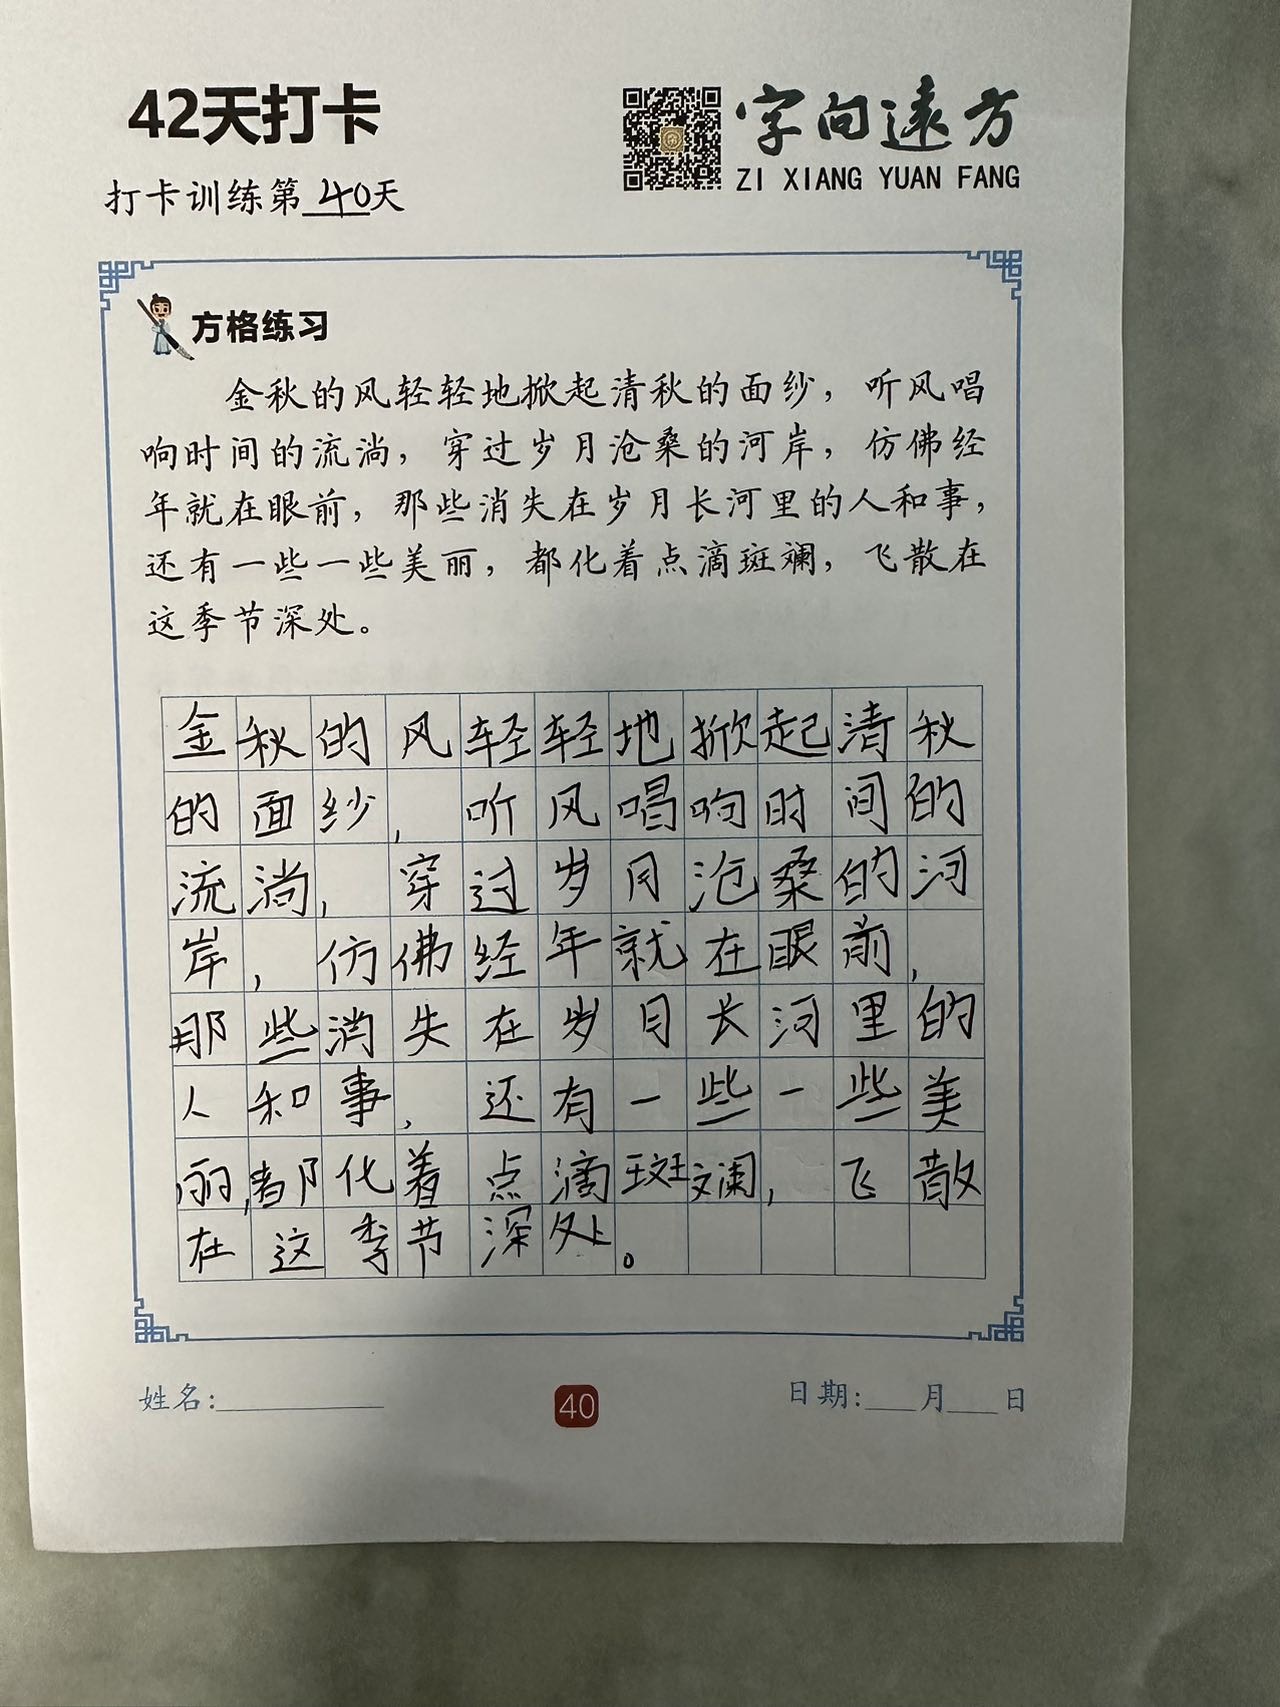 42天打卡
字向遠方
ZI XIANG YUAN FANG
打卡训练第40天
方格练习
金秋的风轻轻地掀起清秋的面纱，听风唱
响时间的流淌，穿过岁月沧桑的河岸，仿佛经
年就在眼前，那些消失在岁月长河里的人和事，
还有一些一些美丽，都化着点滴斑斓，飞散在
这季节深处。
金秋的风轻轻地掀起清秋
的面纱，听风唱响时间的
流淌，穿过岁月沧桑的河
岸，仿佛经年就在眼前，
那些消失在岁月长河里的
人和事，还有一些一些美
丽，都化着点滴斑斓，飞散
在这季节深处。
姓名：
40
日期：月日